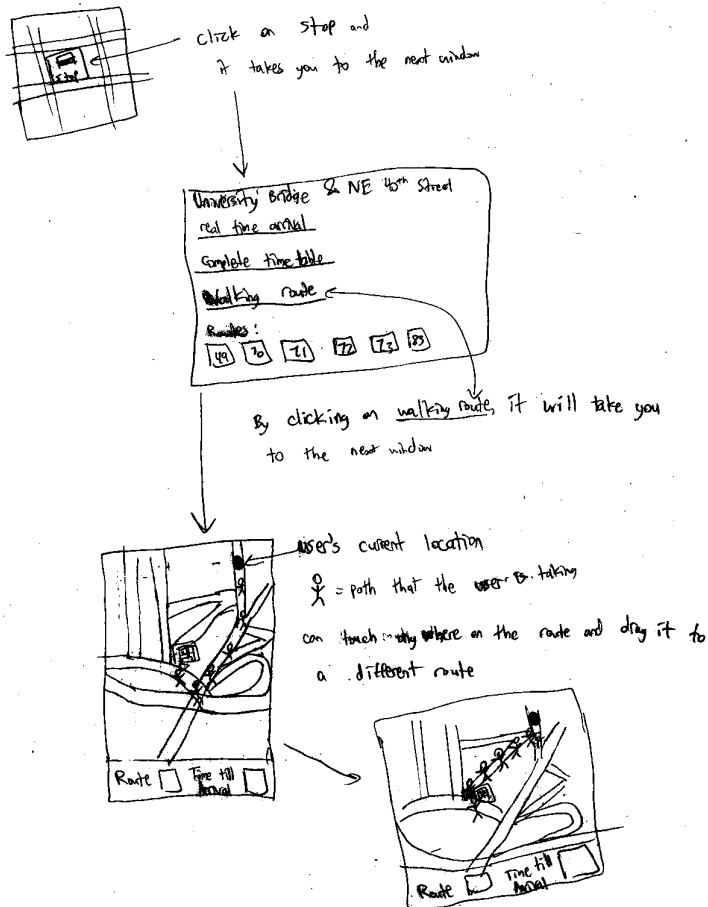 Stop
click on stop and
it takes you to the next window
University Bridge & NE 40th Street
real time arrival
Complete time table
Walking route
Routes:
49 70 71 72 73 83
By clicking on walking route, it will take you
to the next window
user's current location
= path that the user is taking
can touch any where on the route and drag it to
a different route
Route Time till
Arrival
Route Time till
Arrival